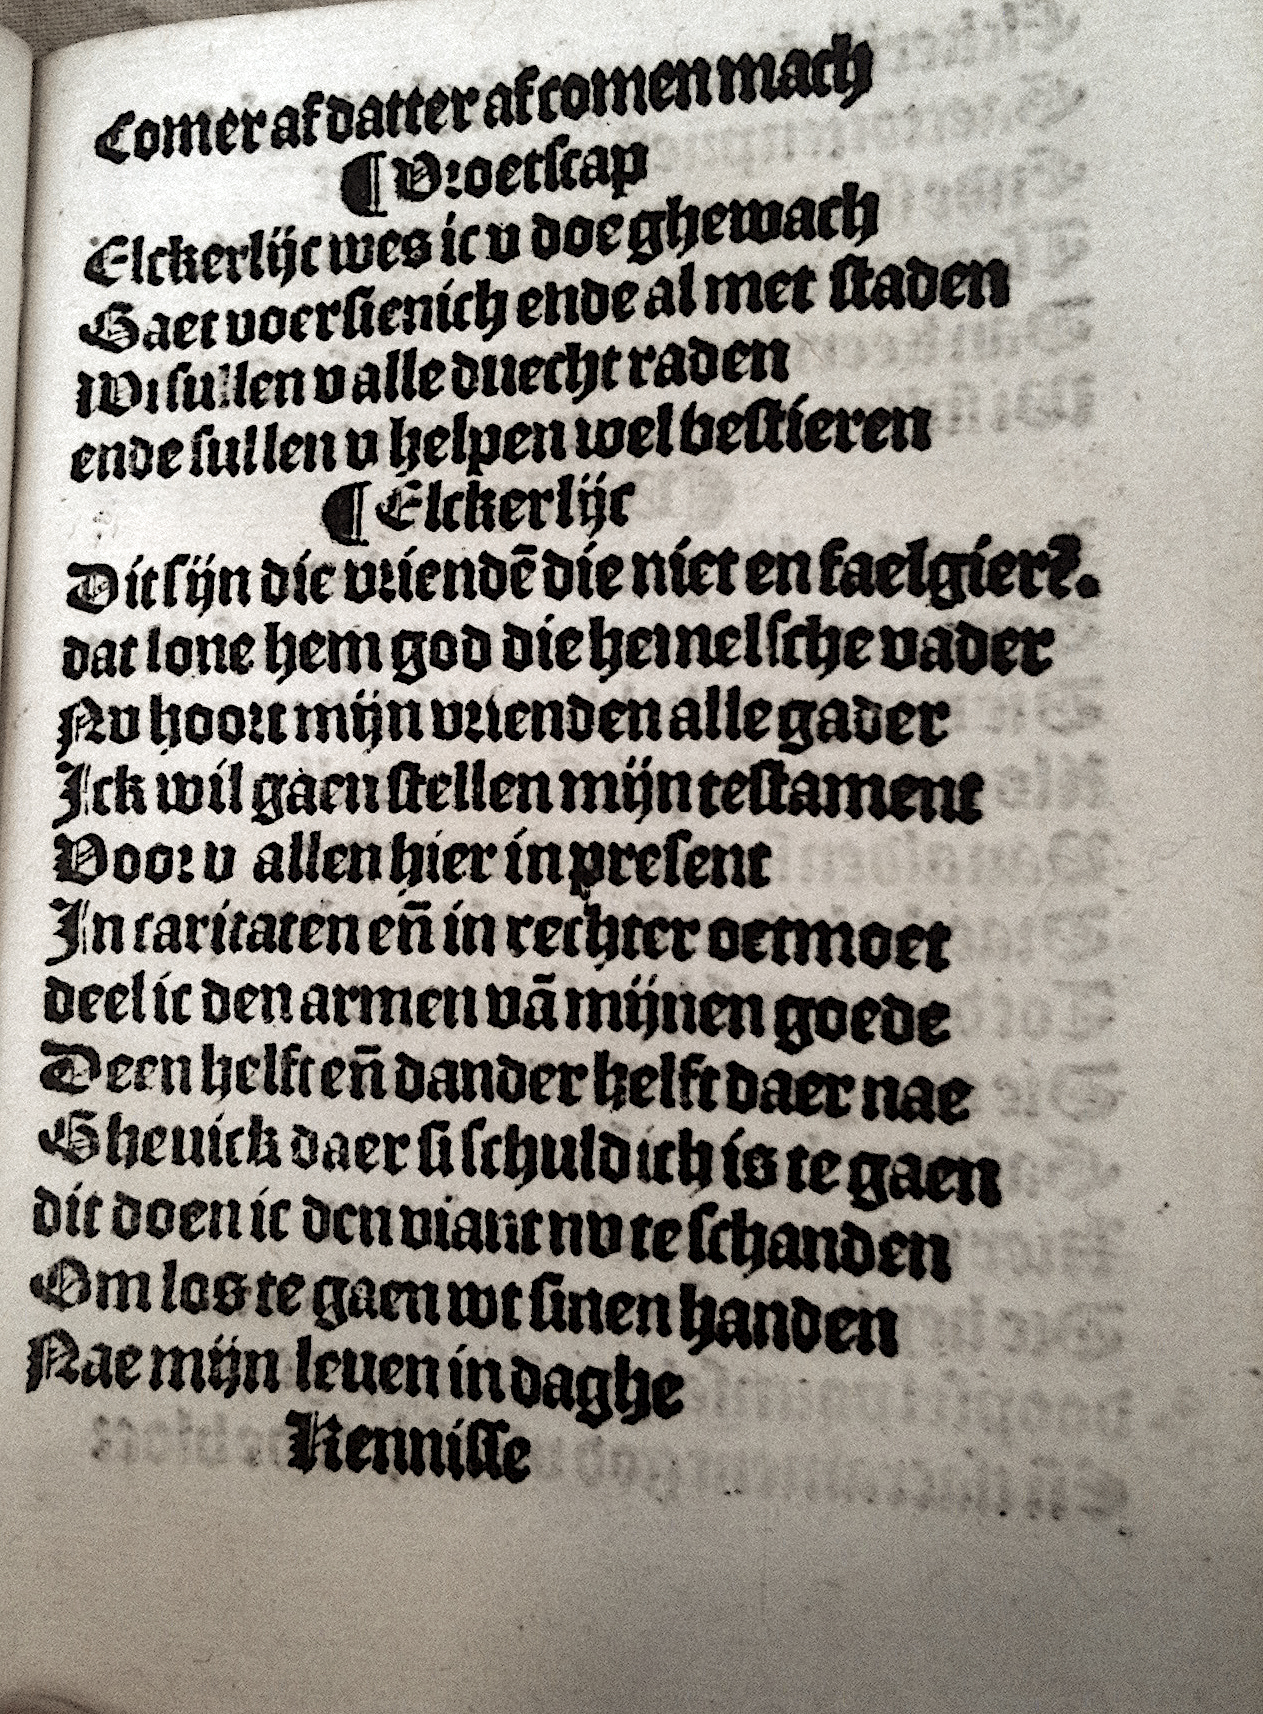 Comer af datter af comen mach
¶ Vroetscap
Elckerlijc wes ic v doe ghewach
Gaet voersienich ende al met staden
Wi sullen v alle duecht raden
ende sullen v helpen wel bestieren
¶ Elckerlijc
Dit sijn die vriendē die niet en faelgierē.
dat lone hem god die hemelsche vader
Nv hoort mijn vrienden alle gader
Ick wil gaen stellen mijn testament
Voor v allen hier in present
In caritaten en̄ in rechter oetmoet
deel ic den armen vā mijnen goede
Deen helft en̄ dander helft daer nae
Gheuick daer si schuldich is te gaen
dit doen ic den viant nv te schanden
Om los te gaen wt sinen handen
Nae mijn leuen in daghe
Kennisse